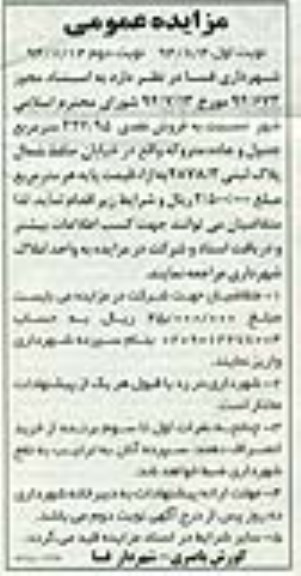 مزایده عمومی
نوبت اول: نوبت دوم
شهرداری فسا در نظر دارد به استناد مجوز
مورخ شورای محترم اسلامی
شهر نسبت به فروش نقدی مترمربع
فضول و جاده متروکه واقع در خیابان حافظ شمال
پلاک ثبتی قیمت پایه هر متر مربع
مبلغ ریال و شرایط زیر اقدام نماید. لذا
متقاضیان می توانند جهت کسب اطلاعات بیشتر
و دریافت اسناد و شرکت در مزایده به واحد املاک
شهرداری مراجعه نمایند.
۱- متقاضیان جهت شرکت در مزایده می بایست
مبلغ ریال به حساب
بنام سپرده شهرداری
واریز نمایند.
۲- شهرداری در رد یا قبول هر یک از پیشنهادات
مختار است.
۳- چنانچه نفرات اول تا سوم برنده از خرید
انصراف دهند سپرده آنان به ترتیب به نفع
شهرداری ضبط خواهد شد.
۴- مهلت ارائه پیشنهادات به دبیرخانه شهرداری
ده روز پس از درج آگهی نوبت دوم می باشد.
۵- سایر شرایط در اسناد مزایده قید می گردد.
کورش ناصری - شهردار فسا